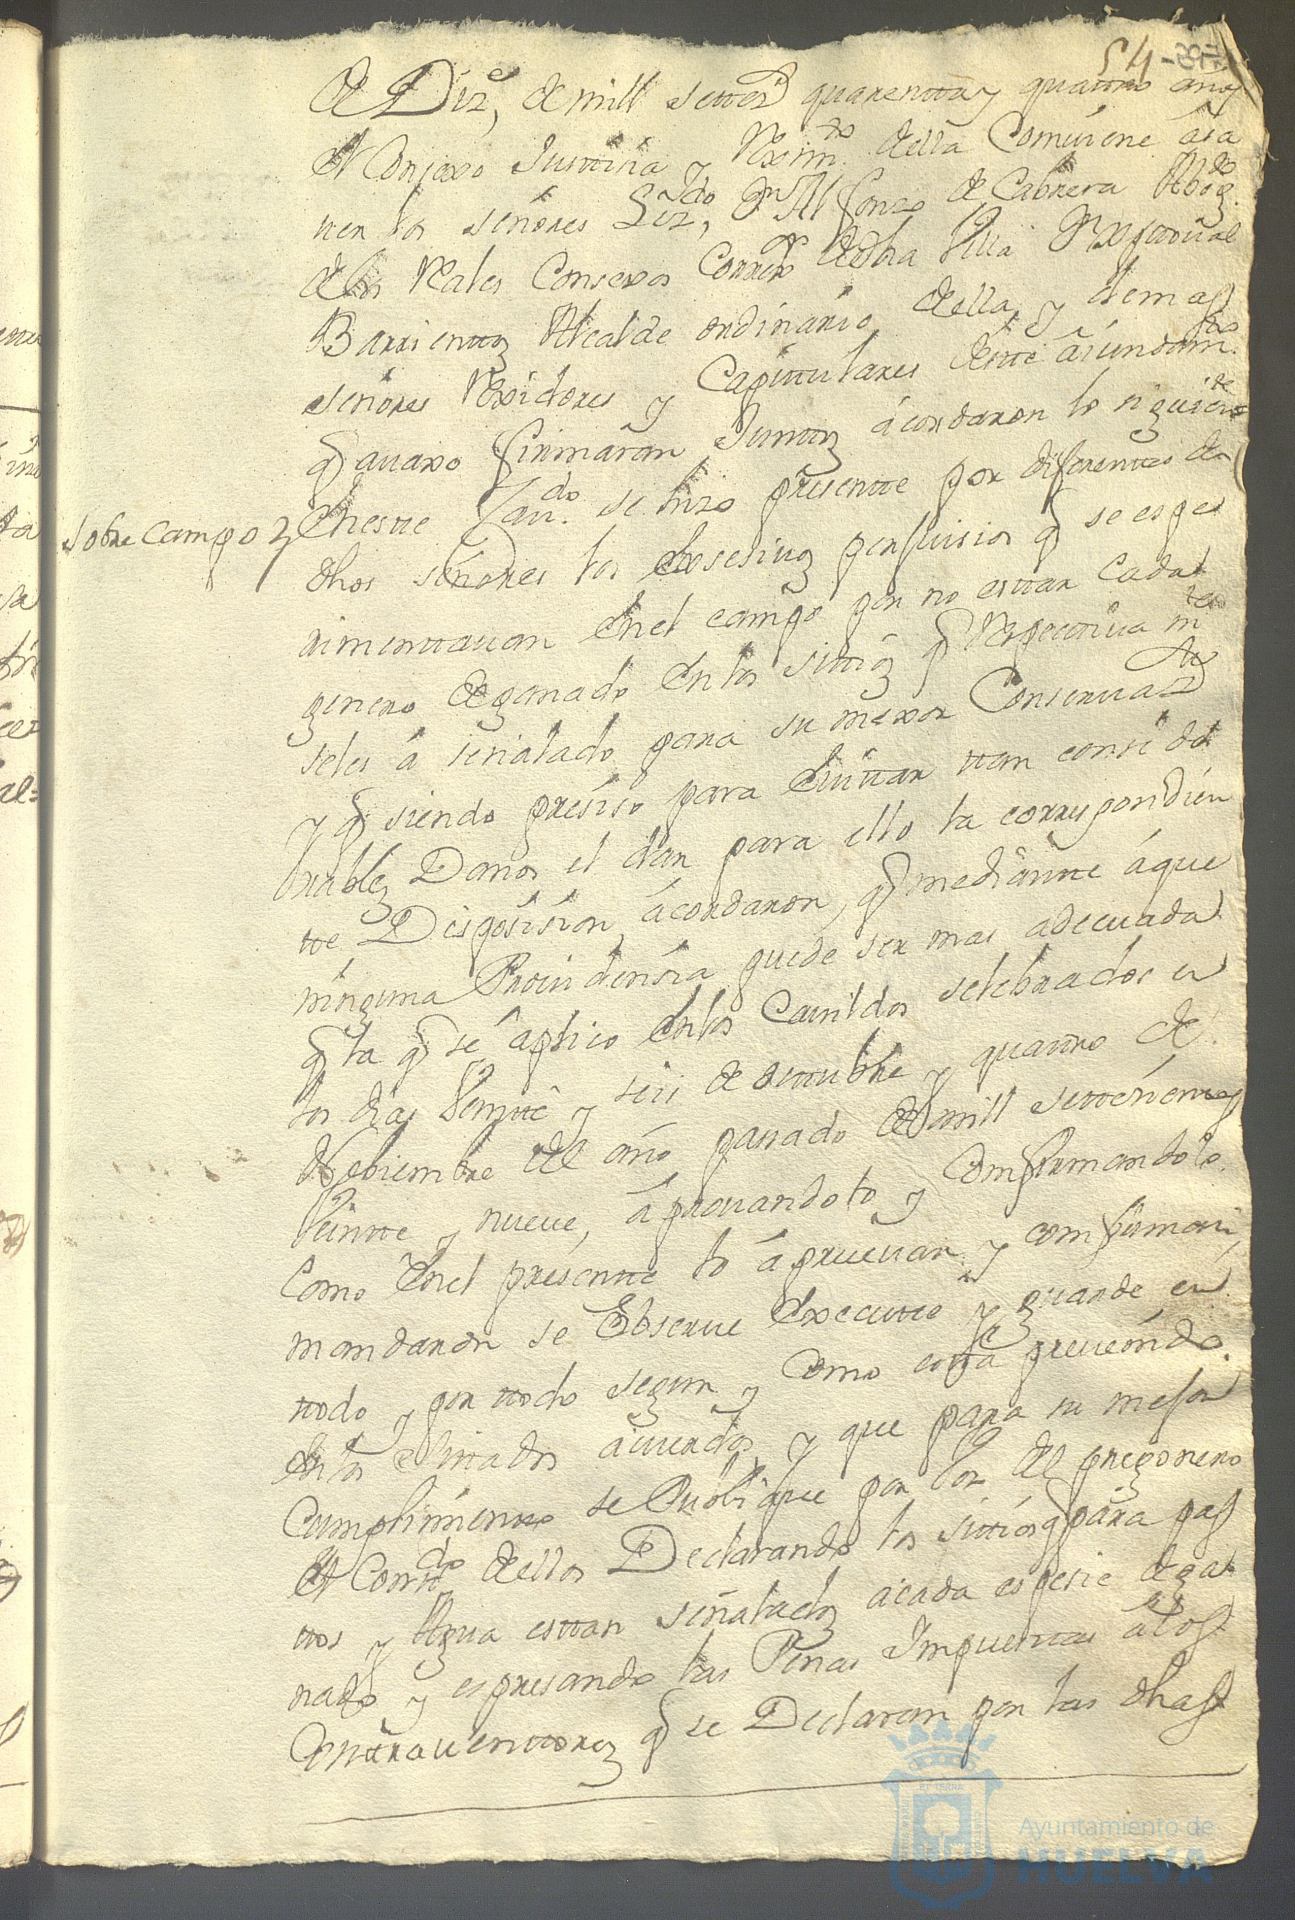 54
de Diz.e de mill settez.s quarentta y quattro años
el Conzexo Justizia y Reximto della Combiene á sa
uer los señores Lizdo Dn Alfonzo de Cabrera Abogdo
delos Reales Consexos Correxor desta billa Dn
Barrienttos Alcalde ordinario della, y demas
señores Rexidores y Capittulares deste aiundamto
q avaxo firmaran Junttos ácordaron lo siguiente
Sobre campo
Eneste Cavdo. se hizo presente por diferentes de
dhos señores los exsesivos perjuisios q se espe
rimenttauan enel campo por no esttar Cada
genero de ganado en los sittios q Respectiua mte
seles á señalado para su mexor Conserua
y q siendo presiso para Euittar ttan conside
rables Daños el dar para ello la correspondien
tte Disposision, ácordaron, q mediantte áque
ninguna Prouidensia puede ser mas adecuada
q la q se áplico enlos Cauildos selebrados en
los dias beintte y seis de octtubre y quattro de
Nobiembre del año passado de mill settesienttos
beintte y nueve, áprouandolo y Comfirmandolo
Como Enel presentte lo áprueuan y comfirman
mandaron se Observe Executte y guarde en
ttodo y por ttodo segun y Como estta preuenido
enlos Cittados acuerdos y que para su mejor
Cumplimientto se Publique por bos del pregonero
el Contdo dellos Declarando los sittios q para pas
ttos y Agua esttan señalados acada espesie de ga
nado y espresando las Penas Impuesttas álos
Conttrauenttores q se Declaran por las dhas
Ayuntamiento de
HUELVA